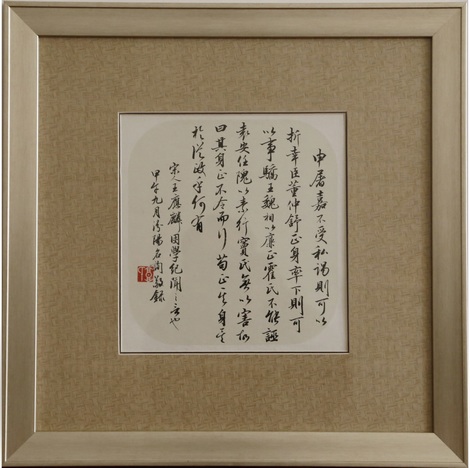 申屠嘉不受私謁則可以
折幸臣董仲舒正身率下則可
以事驕王魏相以廉正霍氏不能誣
袁安任隗以素行竇氏無以害故
曰其身正不令而行苟正其身矣
於從政乎何有
宋人王應麟困學紀聞之言也
甲午九月汾陽石敬錄